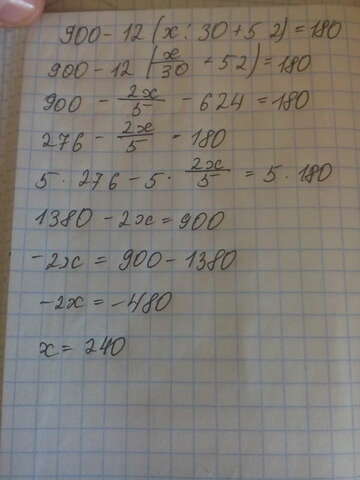 900 - 12 (x : 30 + 52) = 180
900 - 12 (x/30 + 52) = 180
900 - 2x/5 - 624 = 180
276 - 2x/5 = 180
5 · 276 - 5 · 2x/5 = 5 · 180
1380 - 2x = 900
-2x = 900 - 1380
-2x = -480
x = 240